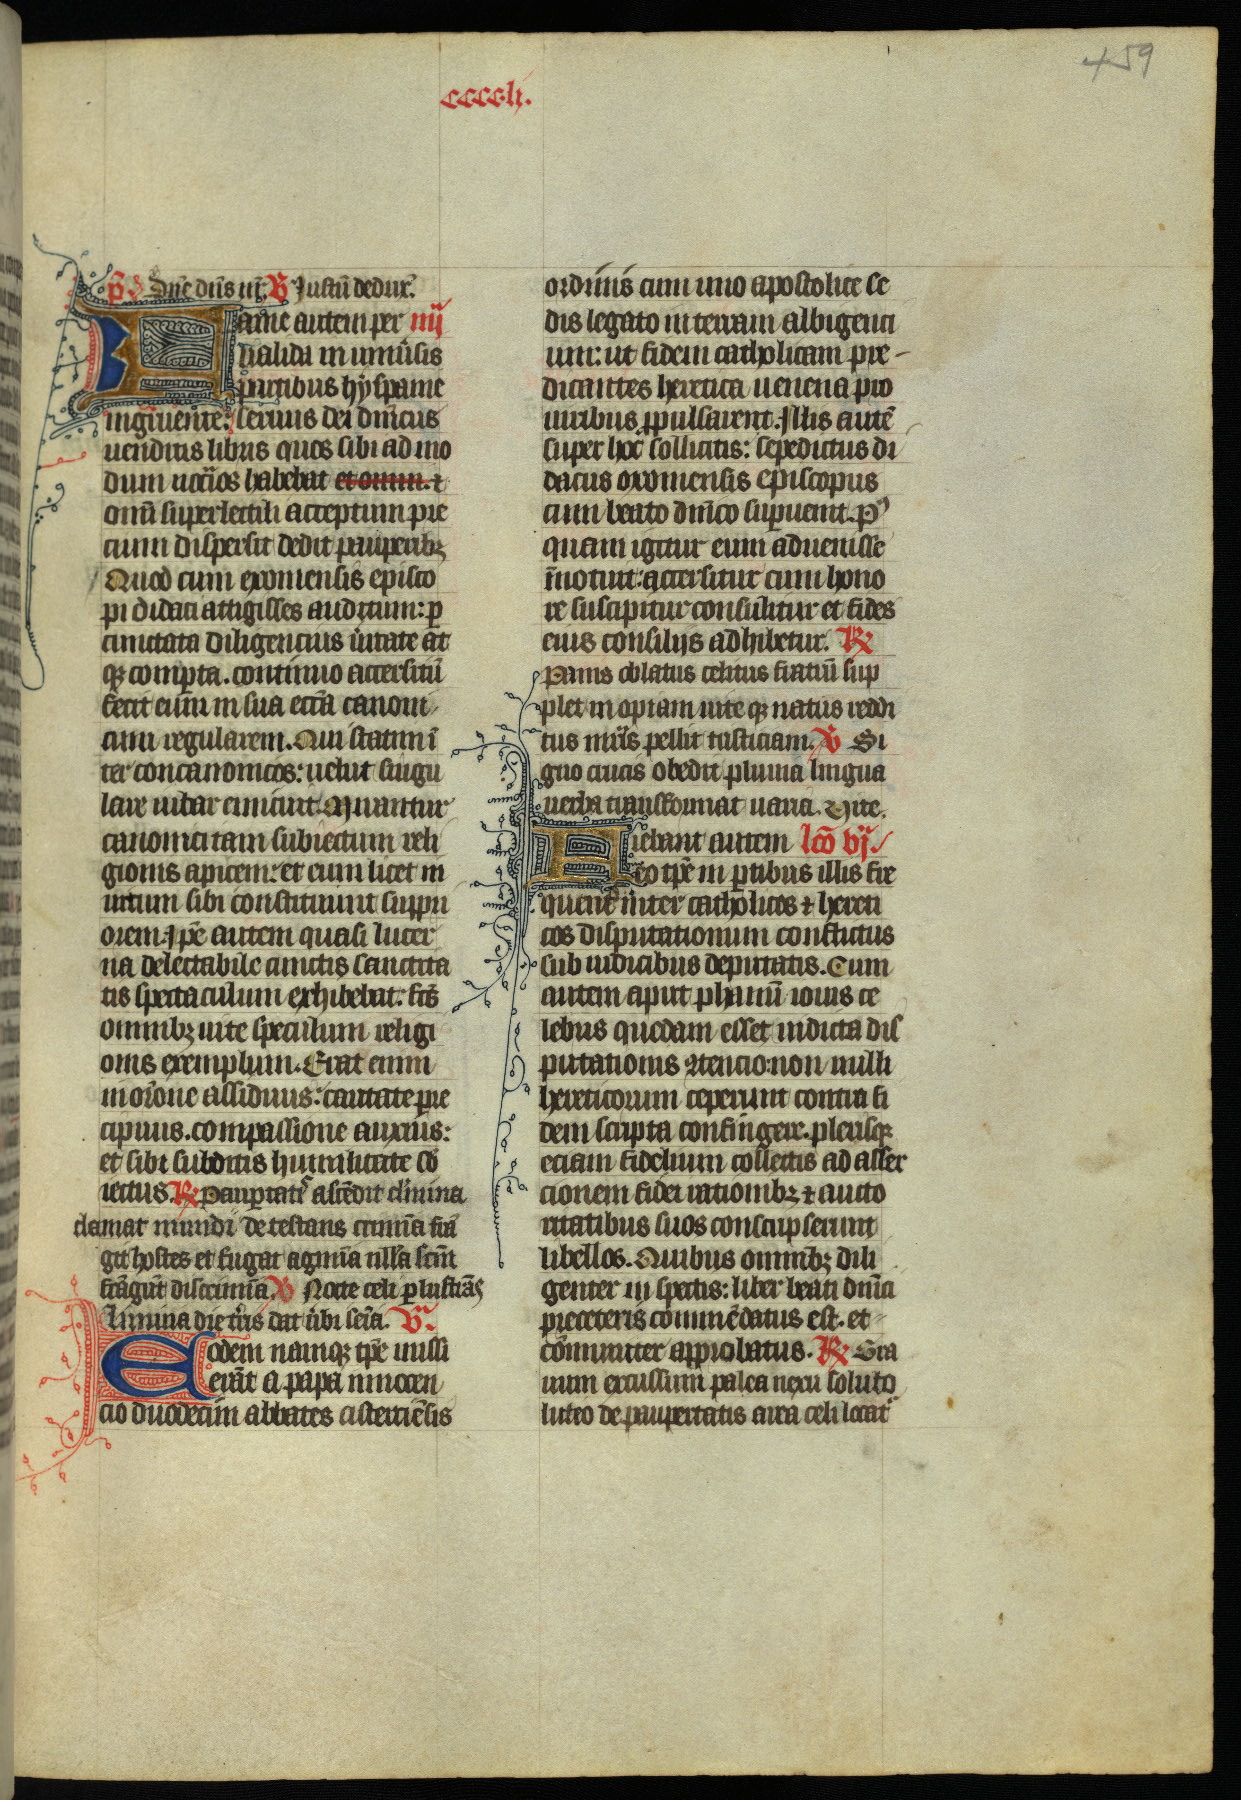 459
cccclj.
p̄s Dn̄e dn̄s nr̄. V Justū deduxᷓ.
Fame autem per iiij
ualida in uniūsis
partibus hyspanie
ingruente: seruus dei dn̄icus
uenditis libris quos sibi ad mo
dum nccīos habebat et omni. et
omī superlectili acceptum pre
cium dispersit dedit pauperibꝫ
Quod cum exoniensis episco
pi didaci attigisset auditum: p
cunctata diligencius ūitate at
qꝫ comperta. continuo accersitū
fecit eum in sua eccīa canoni
cum regularem. Qui statim ī
ter concanonicos: uelut singu
lare iubar emicuit. Mirantur
canonici tam subiectum reli
gionis apicem: et eum licet in
uitum sibi constituunt suppri
orem. Ipē autem quasi lucer
na delectabile cunctis sanctita
tis spectaculum exhibebat: fcūs
omnibꝫ uite speculum religi
onis exemplum. Erat enim
in orōne assiduus: caritate pre
cipuus. compassione anxius:
et sibi subditis humilitate sb̄
iectus. R Paupertatᷤ ascēdit culmina
clamat mundi detestans crimīa frā
git hostes et fugat agmīa nulla sent̄
frāgūt discrimīa. V Nocte celi plustrās
limina die tr̄ris dat ūbi semīa. vj.
Eodem namqꝫ tpē missi
erāt a papa innocen
cio duodecim abbates cisterciēsis
ordinis cum uno apostolice se
dis legato in terram albigenci
um: ut fidem catholicam pre-
dicantes heretica uenena pro
uiribus ꝓpulsarent. Illis autē
super hoc sollicitis: sepedictus di
dacus oxoniensis episcopus
cum beato dn̄ico superuenit. P9
quam igitur eum aduenisse
īnotuit: accersitur cum hono
re suscipitur consulitur et fides
eius consilijs adhibetur. R
Panis oblatus celitus fratrū sup
plet inopiam uite qꝫ natus reddi
tus mr̄is pellit tristiciam. V Si
gno crucis obedit pluuia lingua
uerba transformat uaria. Vite.
Fiebant autem lc̄o vj.
eo tpē in partibus illis fre
quenter inter catholicos et hereti
cos disputationum conflictus
sub iudicibus deputatis. Cum
autem aput phanū iouis ce
lebris quedam esset indicta dis
putationis ꝯtencio: non nulli
hereticorum ceperunt contra fi
dem scripta confingere. plerisqꝫ
eciam fidelium collectis ad asser
cionem fidei rationibꝫ et aucto
ritatibus suos conscripserunt
libellos. Quibus omnibꝫ dili
genter inspectis: liber beati dn̄ici
preceteris commēdatus est. et
cōmuniter approbatus. R Gra
num excussum palea nexu soluto
luteo de paupertatis area celi locatᷤ